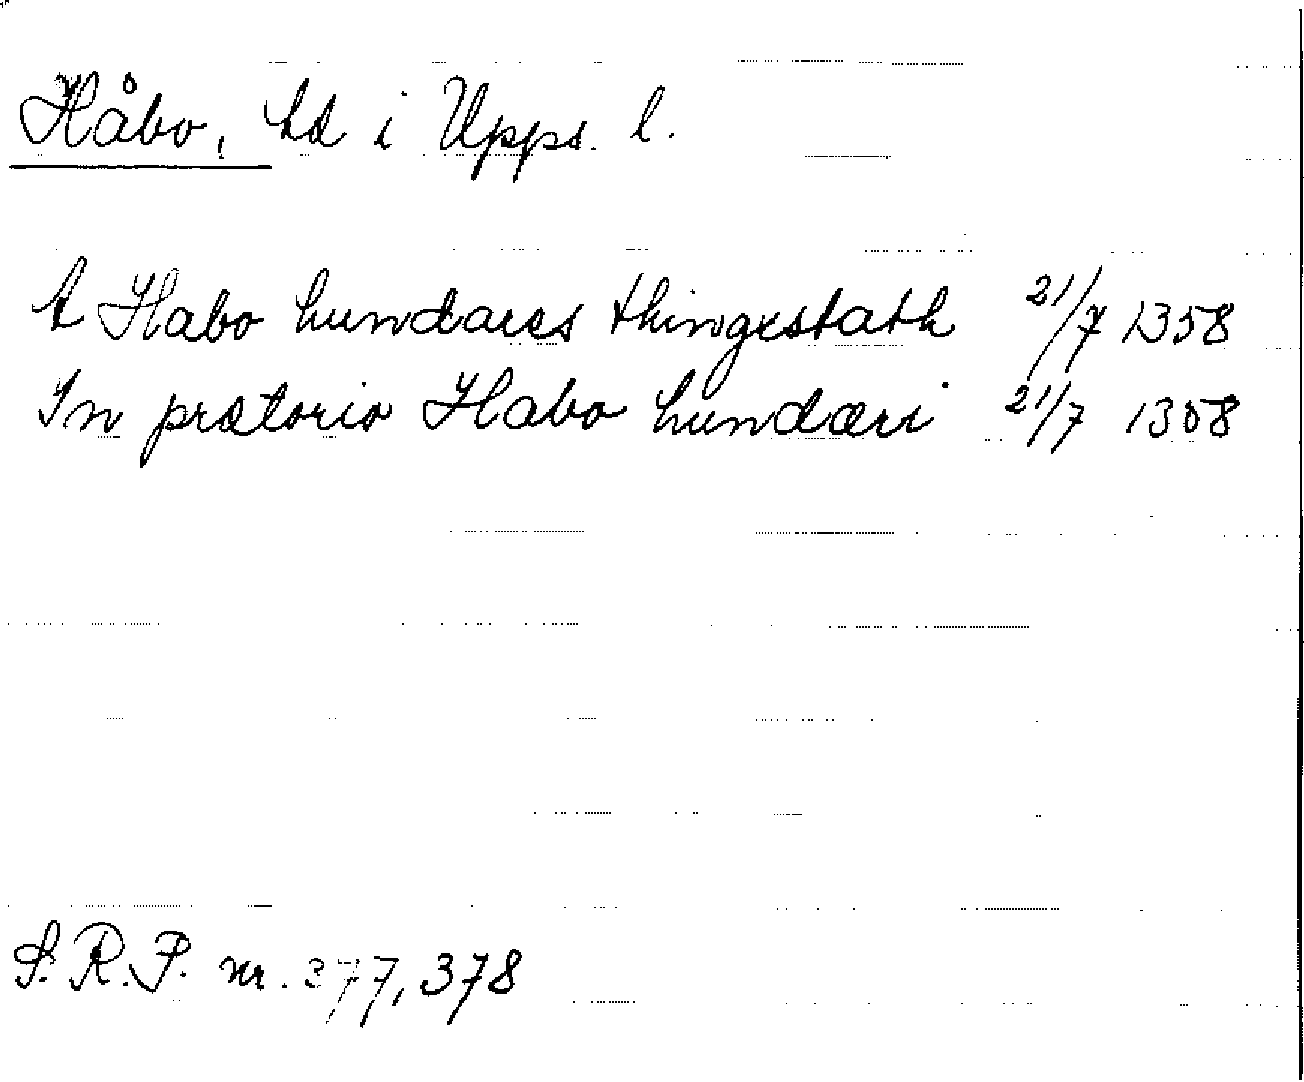 Håbo, hd i Upps. l.
A Habo hundæres thingestath 21/7 1358
In pretorio Habo hundæri 21/7 1358
S.R.P. nr. 377, 378